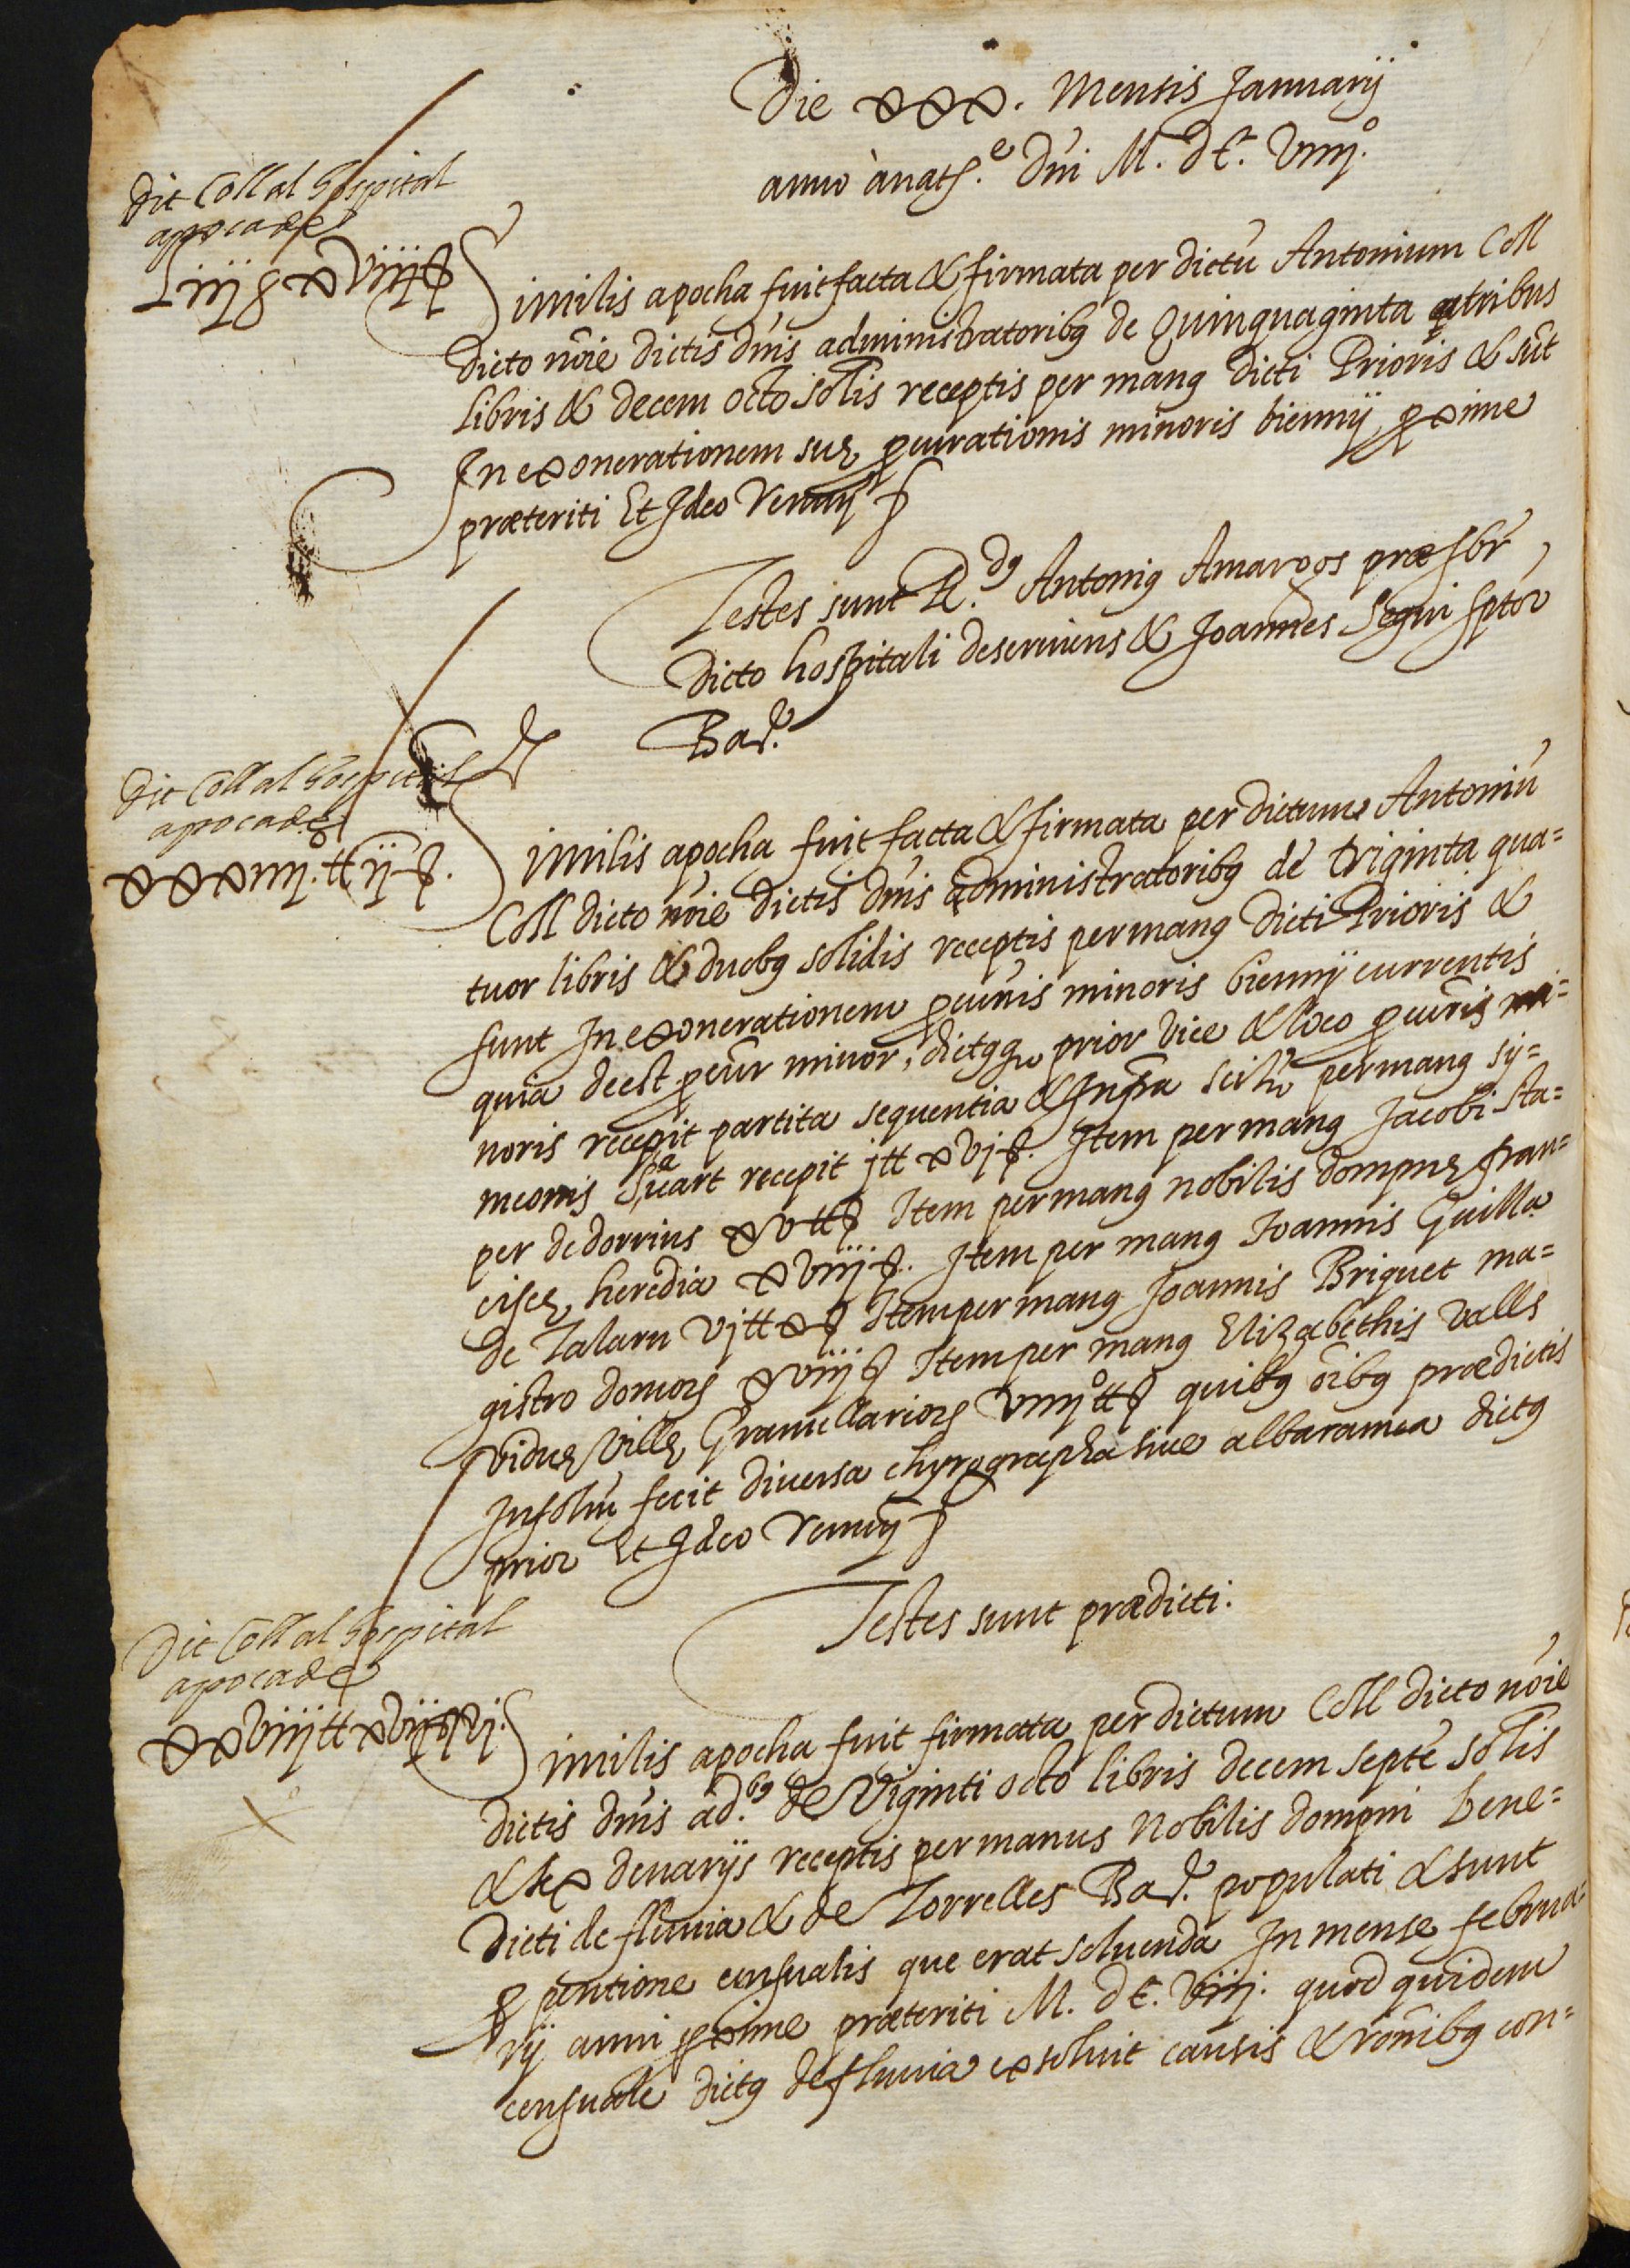 Die xxx. Mensis Januarij
anno à nat.e Dñi M. DC. Viiij.º
Dit Coll al Hospital
apoca de
Liij lł xviij ß
Similis apocha fuit facta & firmata per dictũ Antonium Coll
dicto nõie dictis dñis administratoribꝯ de Quinquaginta tribus
libris & decem octo solis receptis per manꝯ dicti Prioris & sũt
In exonerationem suę ꝓcurationis minoris biennij ꝓxime
præteriti Et Ideo Renuũ ꝭ
Testes sunt R.dꝯ Antoniꝯ Amargos præsbr̃
dicto hospitali deseruiens & Joannes Segui sptor
Bar.e
Dit Coll al Hospital
apoca de
xxxiiij.º lł ij ß.
Similis apocha fuit facta & firmata per dictum Antoniũ
Coll dicto nõie dictis dñis administratoribꝯ de triginta qua=
tuor libris & duobꝯ solidis receptis per manꝯ dicti Prioris &
sunt In exonerationem ꝓcurñis minoris biennij currentis
quia deest ꝓcur̃ minor, dictꝯqꝫ prior vice & loco ꝓcuris mi=
noris recepit partita sequentia & Infra scilt per manꝯ sy=
meonis Ricart recepit j lł xvj ß. Item per manꝯ Jacobi Sta=
per de dorrius xv lł ß Item per manꝯ nobilis dompnę fran=
ciscę heredia xviij ß. Item per manꝯ Joannis Guilla
de Talarn vj lł x ß Item per manꝯ Joannis Briquet ma=
gistro domorꝫ xviij ß Item per manꝯ Elizabethis valls
viduę villę Granullariorꝫ viiij.º lł ß quibꝯ õibꝯ prædictis
Insolũ fecit diuersa chyrographa siue albarana dictꝯ
prior Et Ideo Renuũ ꝭ
Testes sunt prædicti.
Dit Coll al Hospital
apoca de
xxviij lł xvij ß vj.
Similis apocha fuit firmata per dictum Coll dicto nõie
dictis dñis ad.bꝯ de Viginti octo libris decem septẽ solis
& sex denarijs receptis per manus Nobilis dompni Bene=
dicti de fluuia & de Torrelles Bar.e populati & sunt
ꝓ pentione censualis que erat soluenda In mense februa=
rij anni ꝓxime præteriti M. DC. Viij. quod quidem
censuale dictꝯ de fluuia exsoluit causis & rõnibꝯ con=